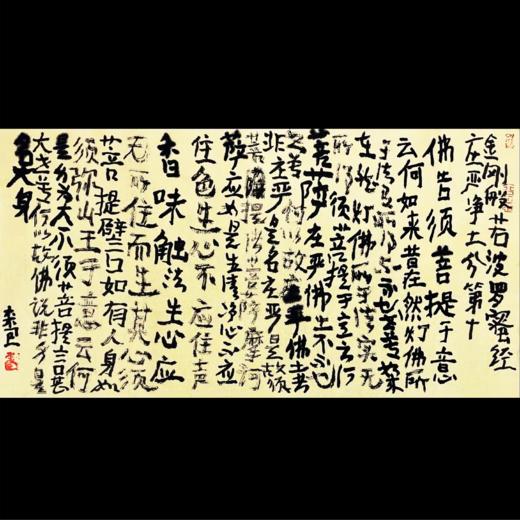 金刚般若波罗蜜经
庄严净土分第十
佛告须菩提于意
云何如来昔在然灯佛所
于法有所得不不也世尊如来
在然灯佛所于法实无
所得须菩提于意云何
菩萨庄严佛土不不也
世尊何以故庄严佛土者
非庄严是名庄严是故
须菩提诸菩萨摩诃
萨应如是生清净心不应
住色生心不应住声
香味触法生心应
无所住而生其心须
菩提譬如有人身如
须弥山王于意云何
是身为大不须菩提言甚
大世尊何以故佛说非身是
名大身